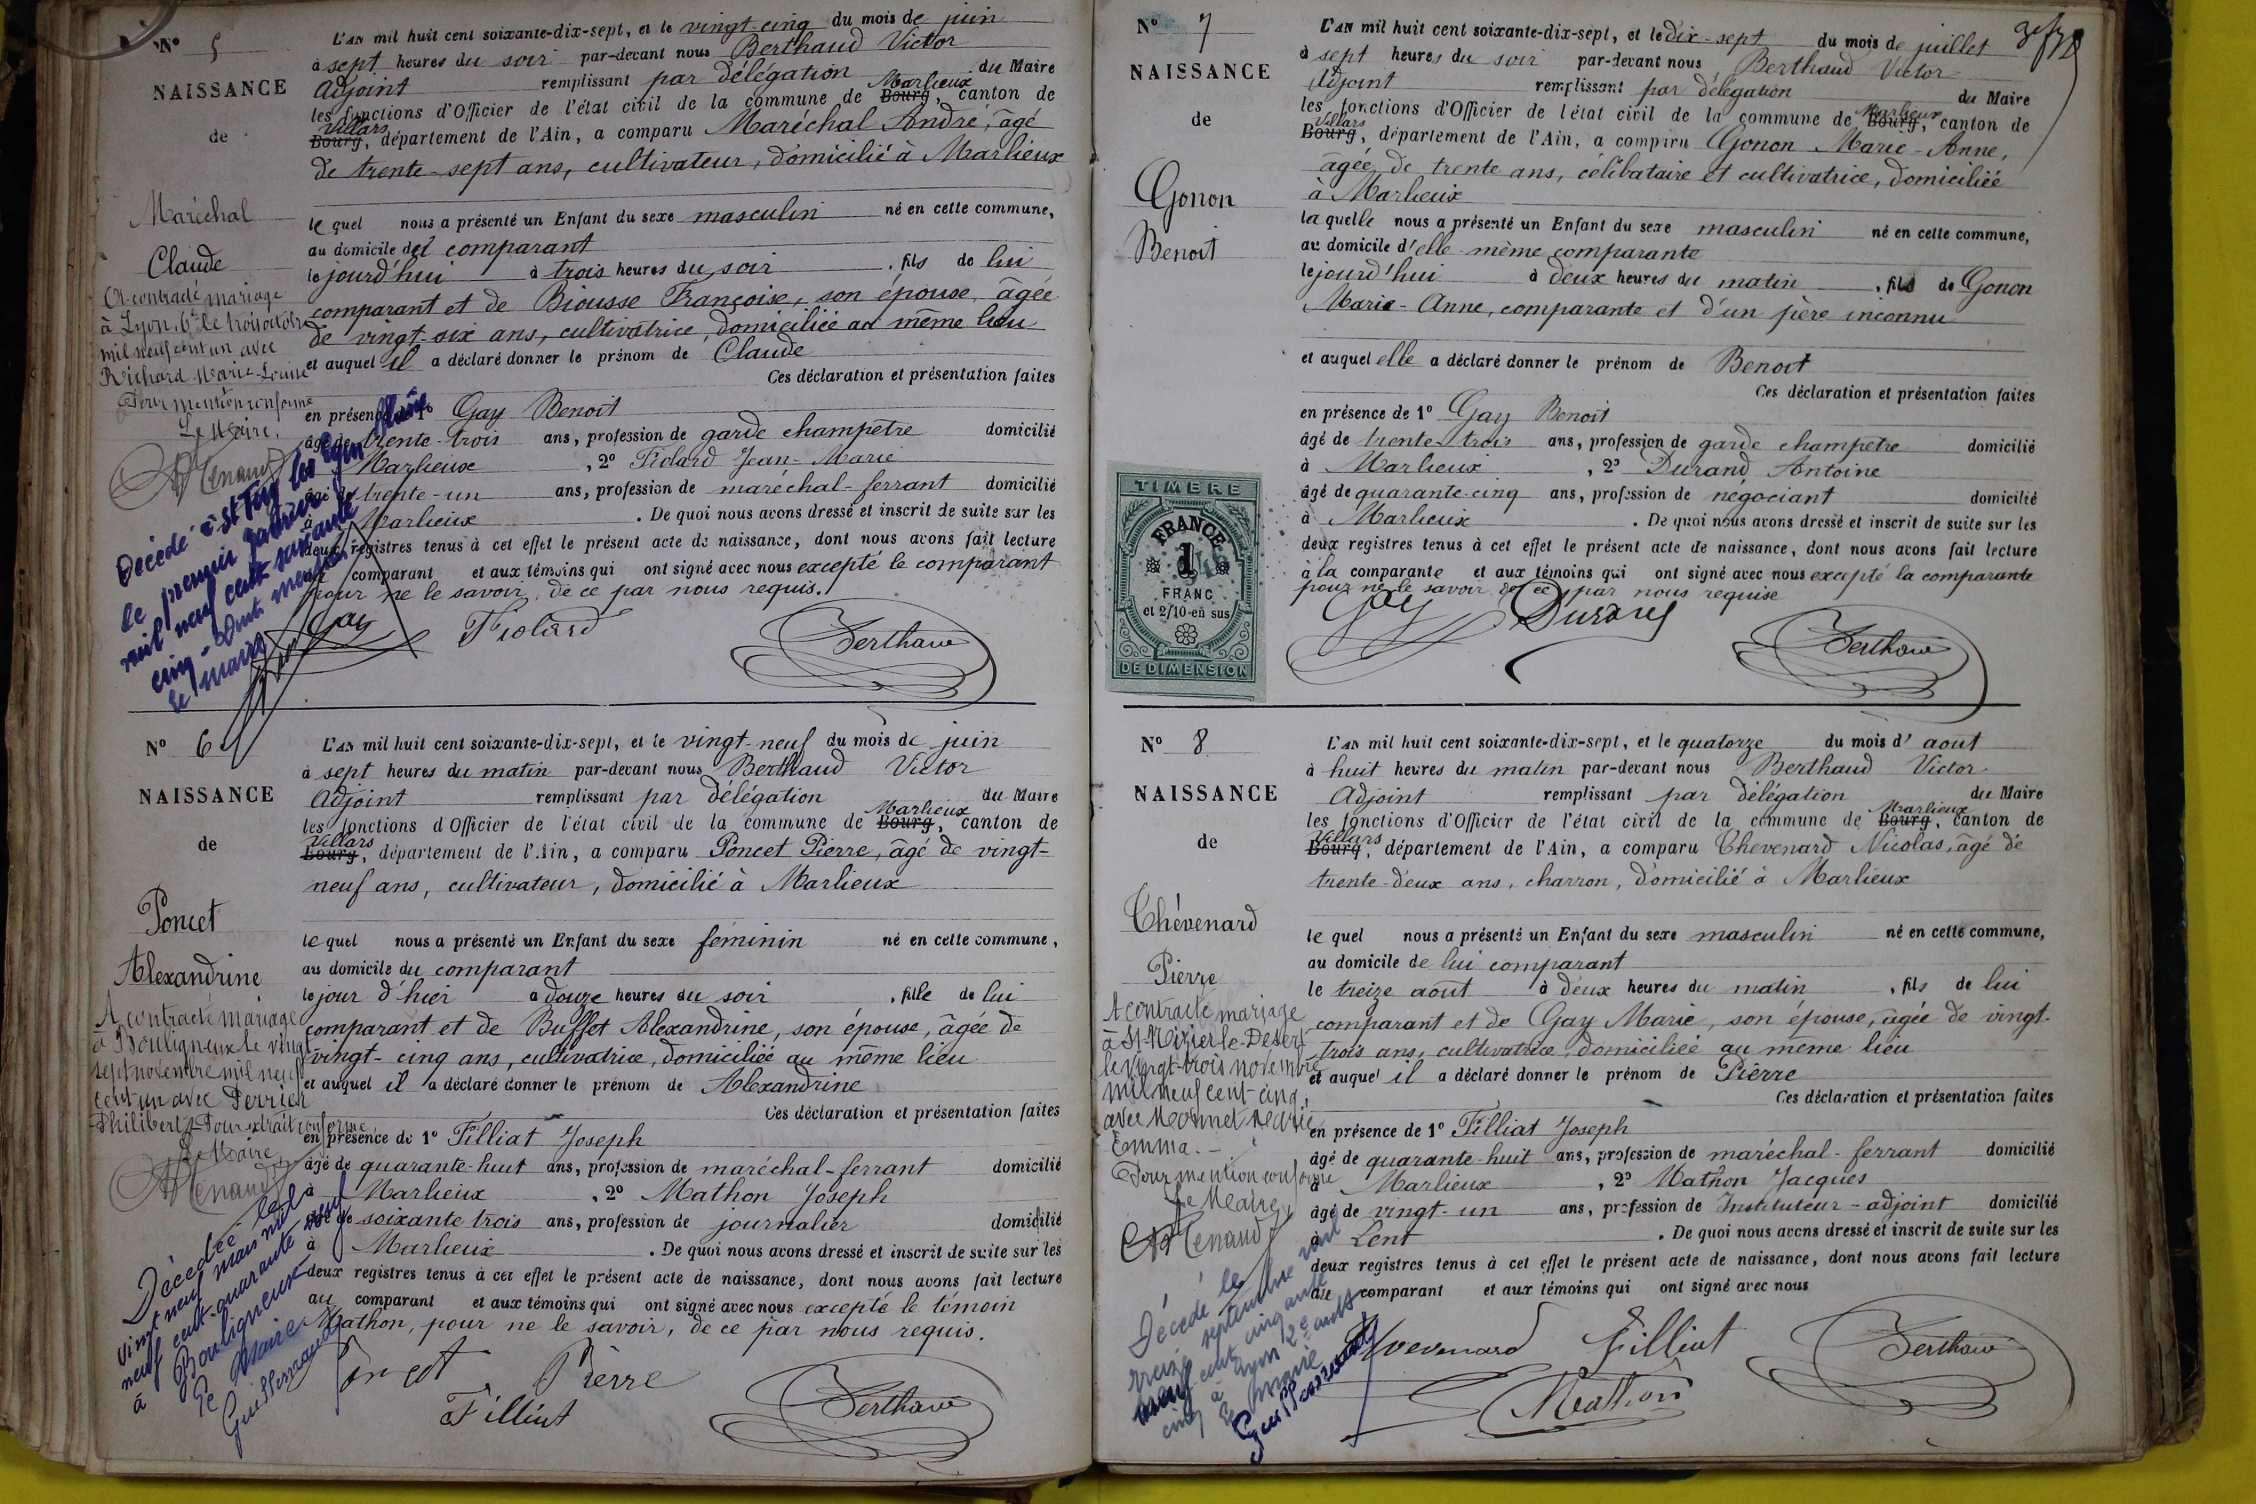 N° 5
NAISSANCE
de
Maréchal
Claude
A contracté mariage
à Lyon, 6e, le trois octobre
mil neuf cent un avec
Richard Marie-Louise
Pour mention conforme
Le Maire,
Décédé à St
le premier
mil neuf cent soixante
cinq
Le maire
L'AN mil huit cent soixante-dix-sept, et le vingt-cinq du mois de juin
à sept heures du soir par-devant nous Berthaud Victor
Adjoint remplissant par délégation du Maire
les fonctions d'Officier de l'état civil de la commune de Bourg Marlieux, canton de
Bourg Villars, département de l'Ain, a comparu Maréchal André, âgé
de trente-sept ans, cultivateur, domicilié à Marlieux
le quel nous a présenté un Enfant du sexe masculin né en cette commune,
au domicile del comparant
le jourd'hui à trois heures du soir, fils de lui
comparant et de Biousse Françoise, son épouse, âgée
de vingt-six ans, cultivatrice, domiciliée au même lieu
et auquel il a déclaré donner le prénom de Claude
Ces déclaration et présentation faites
en présence de 1° Gay Benoit
âgé de trente-trois ans, profession de garde champêtre domicilié
à Marlieux, 2° Fiolard Jean-Marie
âgé de trente-un ans, profession de maréchal-ferrant domicilié
à Marlieux. De quoi nous avons dressé et inscrit de suite sur les
deux registres tenus à cet effet le présent acte de naissance, dont nous avons fait lecture
au comparant et aux témoins qui ont signé avec nous excepté le comparant
pour ne le savoir, de ce par nous requis.
Gay Fiolard Berthaud
N° 6
NAISSANCE
de
Poncet
Alexandrine
A contracté mariage
à Bouligneux le vingt
sept novembre mil neuf
cent un avec Perrier
Philibert. Pour extrait conforme
Le Maire
Décédée le
vingt neuf mars mil
neuf cent quarante neuf
à Bouligneux
Le Maire
L'AN mil huit cent soixante-dix-sept, et le vingt-neuf du mois de juin
à sept heures du matin par-devant nous Berthaud Victor
Adjoint remplissant par délégation du Maire
les fonctions d'Officier de l'état civil de la commune de Bourg Marlieux, canton de
Bourg Villars, département de l'Ain, a comparu Poncet Pierre, âgé de vingt-
neuf ans, cultivateur, domicilié à Marlieux
le quel nous a présenté un Enfant du sexe féminin né en cette commune,
au domicile du comparant
le jour d'hier à douze heures du soir, fille de lui
comparant et de Buffet Alexandrine, son épouse, âgée de
vingt-cinq ans, cultivatrice, domiciliée au même lieu
et auquel il a déclaré donner le prénom de Alexandrine
Ces déclaration et présentation faites
en présence de 1° Filliat Joseph
âgé de quarante-huit ans, profession de maréchal-ferrant domicilié
à Marlieux, 2° Mathon Joseph
âgé de soixante trois ans, profession de journalier domicilié
à Marlieux. De quoi nous avons dressé et inscrit de suite sur les
deux registres tenus à cet effet le présent acte de naissance, dont nous avons fait lecture
au comparant et aux témoins qui ont signé avec nous excepté le témoin
Mathon, pour ne le savoir, de ce par nous requis.
Poncet Pierre
Filliat Berthaud
N° 7
NAISSANCE
de
Gonon
Benoit
TIMBRE
FRANCE
1
FRANC
et 2/10 en sus
DE DIMENSION
L'AN mil huit cent soixante-dix-sept, et le dix-sept du mois de juillet
à sept heures du soir par-devant nous Berthaud Victor
Adjoint remplissant par délégation du Maire
les fonctions d'Officier de l'état civil de la commune de Bourg Marlieux, canton de
Bourg Villars, département de l'Ain, a comparu Gonon Marie-Anne,
âgée de trente ans, célibataire et cultivatrice, domiciliée
à Marlieux
la quelle nous a présenté un Enfant du sexe masculin né en cette commune,
au domicile d'elle-même comparante
le jourd'hui à deux heures du matin, fils de Gonon
Marie-Anne, comparante et d'un père inconnu
et auquel elle a déclaré donner le prénom de Benoit
Ces déclaration et présentation faites
en présence de 1° Gay Benoit
âgé de trente-trois ans, profession de garde champêtre domicilié
à Marlieux, 2° Durand Antoine
âgé de quarante-cinq ans, profession de négociant domicilié
à Marlieux. De quoi nous avons dressé et inscrit de suite sur les
deux registres tenus à cet effet le présent acte de naissance, dont nous avons fait lecture
à la comparante et aux témoins qui ont signé avec nous excepté la comparante
pour ne le savoir de ce par nous requise
Gay Durand Berthaud
N° 8
NAISSANCE
de
Thévenard
Pierre
A contracté mariage
à St Nizier-le-Désert
le vingt-trois novembre
mil neuf cent cinq,
avec Monnet Marie
Emma. -
Pour mention conforme
Le Maire,
Décédé le
treize septembre mil
neuf cent cinquante
cinq à Lyon 2e
Le Maire
L'AN mil huit cent soixante-dix-sept, et le quatorze du mois d'aout
à huit heures du matin par-devant nous Berthaud Victor
Adjoint remplissant par délégation du Maire
les fonctions d'Officier de l'état civil de la commune de Bourg Marlieux, canton de
Bourg Villars, département de l'Ain, a comparu Thevenard Nicolas, âgé de
trente-deux ans, charron, domicilié à Marlieux
le quel nous a présenté un Enfant du sexe masculin né en cette commune,
au domicile de lui comparant
le treize aout à deux heures du matin, fils de lui
comparant et de Gay Marie, son épouse, âgée de vingt-
trois ans, cultivatrice, domiciliée au même lieu
et auquel il a déclaré donner le prénom de Pierre
Ces déclaration et présentation faites
en présence de 1° Filliat Joseph
âgé de quarante-huit ans, profession de maréchal-ferrant domicilié
à Marlieux, 2° Mathon Jacques
âgé de vingt-un ans, profession de Instituteur-adjoint domicilié
à Lent. De quoi nous avons dressé et inscrit de suite sur les
deux registres tenus à cet effet le présent acte de naissance, dont nous avons fait lecture
au comparant et aux témoins qui ont signé avec nous
Thevenard Filliat Berthaud
Mathon